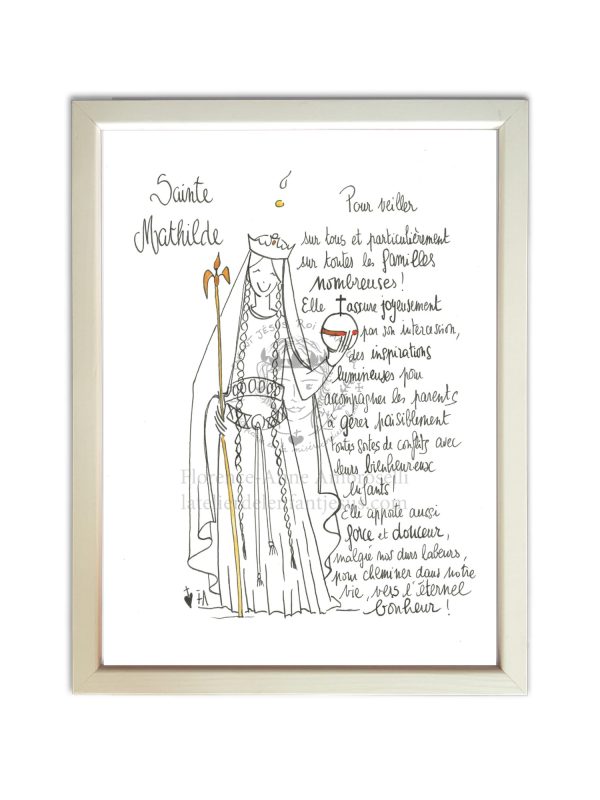 Sainte
Mathilde
Pour veiller
sur tous et particulièrement
sur toutes les familles
nombreuses !
Elle assure joyeusement
par son intercession,
des inspirations
lumineuses pour
accompagner les parents
à gérer paisiblement
toutes sortes de conflits avec
leurs bienheureux
enfants !
Elle apporte aussi
force et douceur,
malgré nos durs labeurs,
pour cheminer dans notre
vie, vers l'éternel
bonheur !
Jésus Roi
Florence-Anne Ambroselli
latelierdelenfantjesus.com
FA